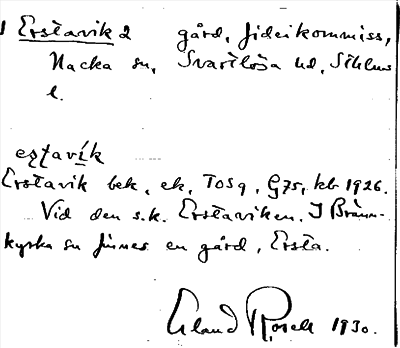 Erstavik 2 gård, fideikommiss,
Nacka sn, Svartlösa hd, Sthlms
l.
Erstavik bek, ek, TOS9, G75, kb 1926.
Vid den s.k. Erstaviken. I Bränn-
kyrka sn finnes en gård, Ersta.
Erland Rosell 1930.